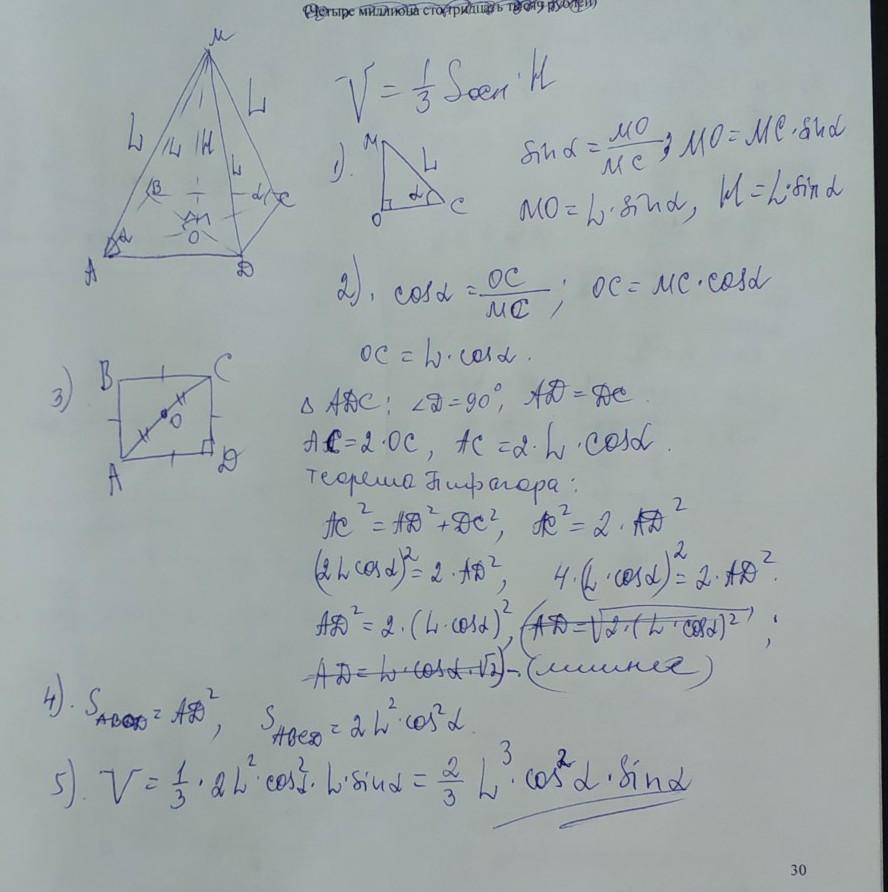 (Четыре миллиона сто тридцать тысяч рублей)
M
L L
L H L
B α C
α O
A D
V = 1/3 Sосн · H
1). M L α O C
sinα = MO/MC; MO = MC · sinα
MO = L · sinα, H = L · sinα
2). cosα = OC/MC; OC = MC · cosα
OC = L · cosα.
3) B C O A D
Δ ADC: ∠D = 90°, AD = DC
AC = 2 · OC, AC = 2 · L · cosα.
Теорема Пифагора:
AC² = AD² + DC², AC² = 2 · AD²
(2L cosα)² = 2 · AD², 4 · (L · cosα)² = 2 · AD².
AD² = 2 · (L · cosα)², (AD = √2 · (L · cosα)²;
AD = L · cosα · √2) - (лишнее)
4). S ABCD = AD², S ABCD = 2L² · cos²α.
5). V = 1/3 · 2L² · cos²α · L · sinα = 2/3 L³ · cos²α · sinα
30